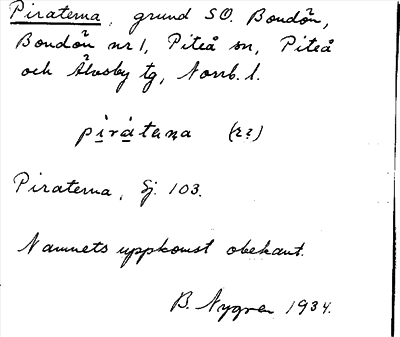 Piraterna, grund SO. Bondön,
Bondön nr 1, Piteå sn, Piteå
och Älvsby tg, Norrb. l.
pìràtena (r2)
Piraterna, Sj. 103.
Namnets uppkomst obekant.
B. Nygren 1934.